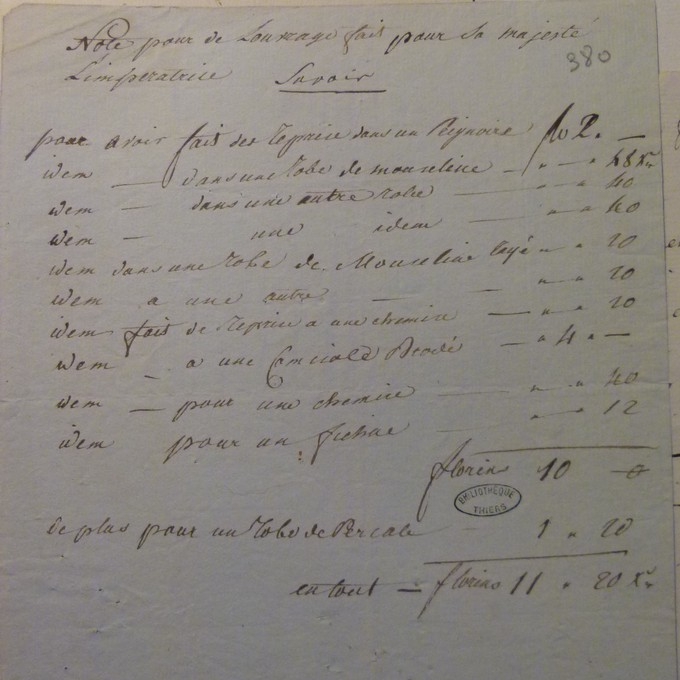 Note pour de Louvrage fait pour Sa majesté
L'imperatrice Savoir
380
pour avoir fait des Reprise dans un Peignoire flo 2. —
idem — dans une Robe de mouseline — " — 48 Xr
idem — dans une autre Robe — " — 40
idem — une idem — " — 40
idem dans une Robe de Mouseline Rayé " " 20
idem a une autre — " " 20
idem fait de Reprise a une chemise — " " 20
idem - a une Camisole Brodé — " 4 " —
idem — pour une chemise — " — " 40
idem pour un fichue — " — " 12
florins 10 — 0
BIBLIOTHÈQUE THIERS
de plus pour un Robe de Percale — 1 " 20
en tout — florins 11 " 20 Xr